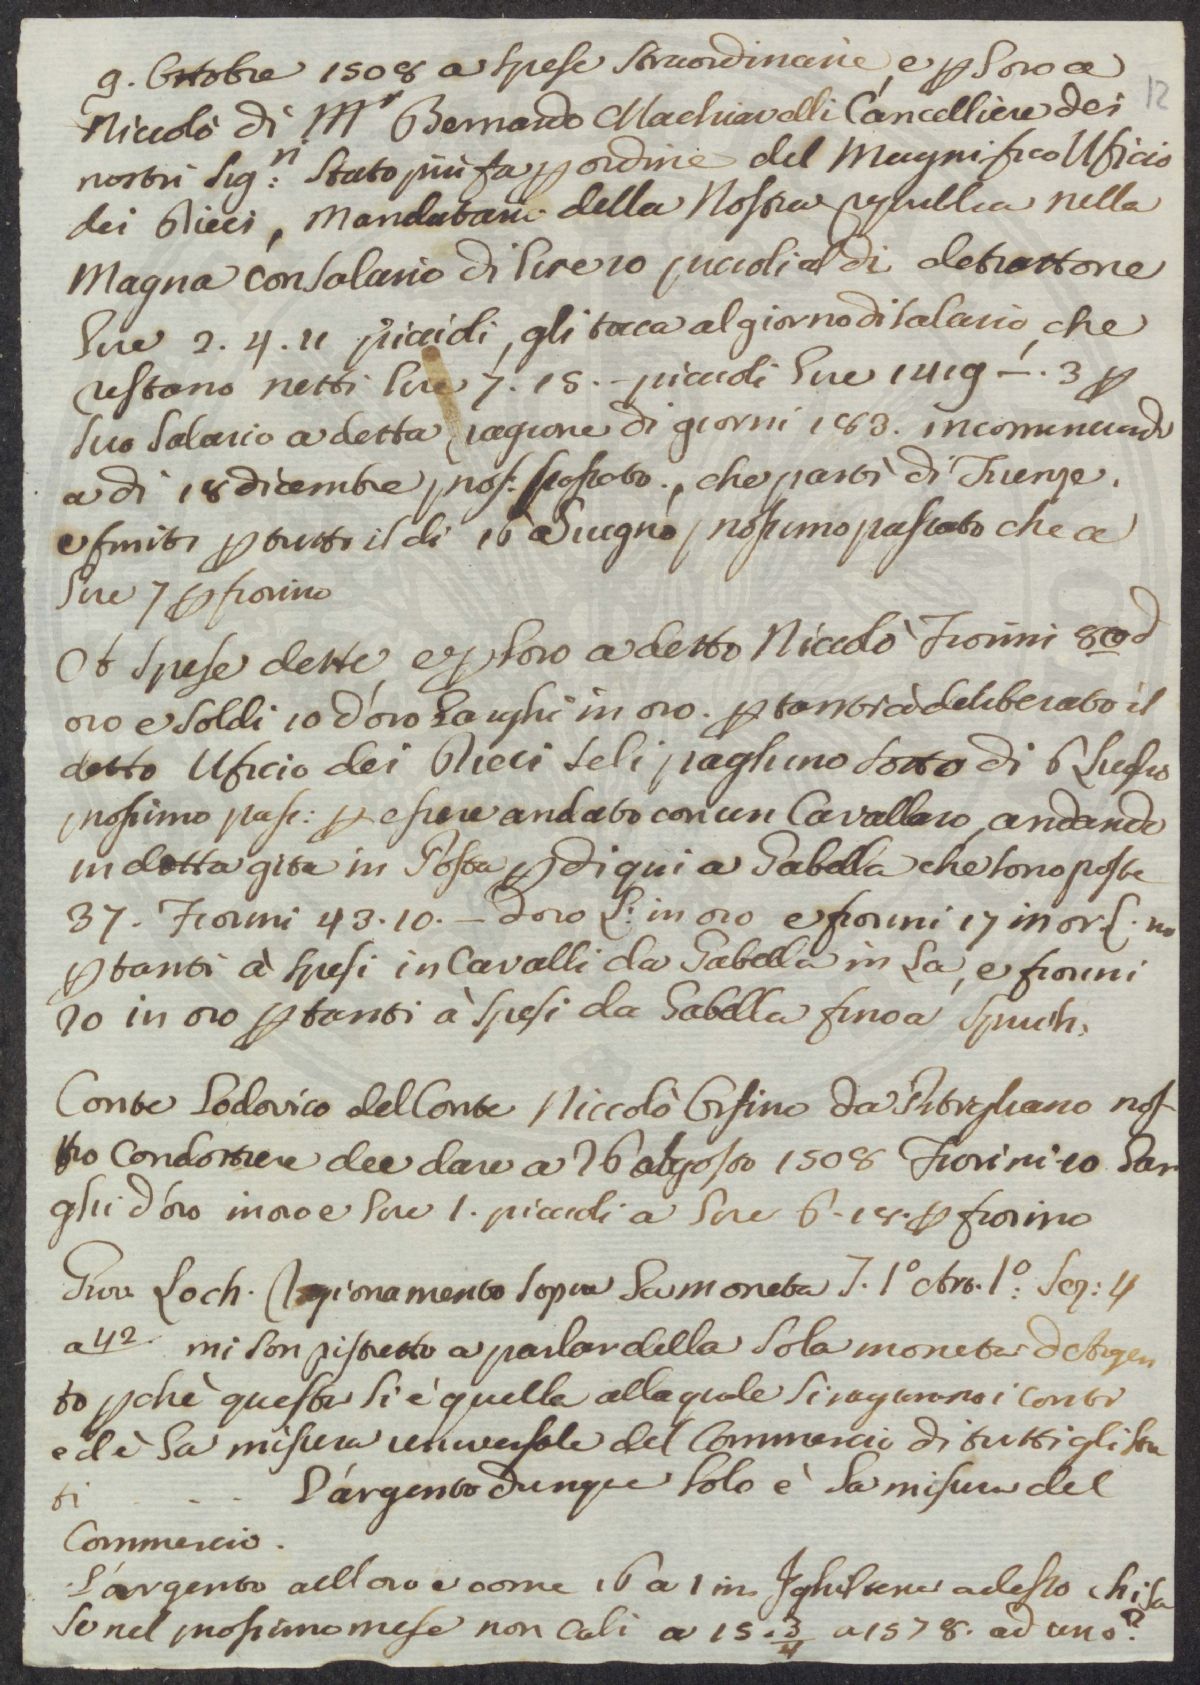 12
9. Ottobre 1508 a spese straordinarie, e p loro a
Niccolò di Mr Bernardo Machiavelli Cancelliere dei
nostri Sig:ri stato più fa p ordine del Magnifico Uficio
dei Dieci, Mandatario della Nostra republica nella
Magna con salario di lire 10 piccioli al dì detrattone
lire 2. 4. 11 piccioli, gli tocca al giorno di salario, che
restano netti lire 7. 15. - piccioli lire 1419 -. 3 p
suo salario a detta ragione di giorni 183. incominciando
a dì 18 dicembre pros: passato, che partì di Firenze,
e finiti p tutto il dì 16 Giugno prossimo passato che a
lire 7 p fiorino
Et spese dette, e p loro a detto Niccolò Fiorini 80 d
oro e soldi 10 d'oro larghi in oro. p tanti à deliberato il
detto Uficio dei Dieci seli paghino sotto dì 6 Luglio
prossimo pass: p essere andato con un Cavallaro, andando
in detta gita in Posta p di qui a Gabella che sono poste
37. Fiorini 43. 10. - d'oro L: in oro e fiorini 17 in or. L. no
p tanti à spesi in Cavalli da Gabella in la, e fiorini
20 in oro p tanti à spesi da Gabella fino a Spruch.
Conte Lodovico del Conte Niccolò Orsino da Pitigliano nos-
tro Condottiere dee dare a 26 Agosto 1508 Fiorini 10 Lar
ghi d'oro in oro e lire 1. piccioli a lire 6. 18. p fiorino
Giov. Loch. Ragionamento sopra la moneta T. 1° Art. 1°: Seq: 4
a 42 mi son ristretto a parlar della sola moneta d Argen
to pchè questa si è quella alla quale si ragionano i conti
ed è la misura universale del Commercio di tutti gli Sta
ti . - . - . L'argento dunque solo è la misura del
Commercio.
L'argento all oro è come 16 a 1 in Ighilterra adesso chi sa
se nel prossimo mese non cali a 15. 3/4 a 15 7 8. ad uno?